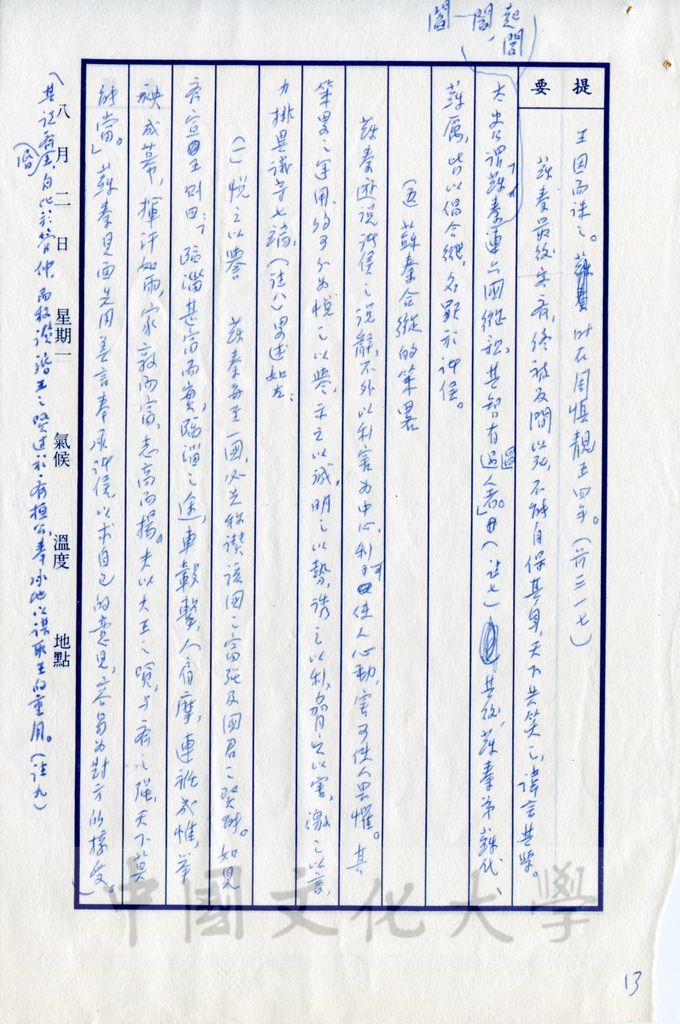 閭一閭,起閭
提要
王因而誅之。時在周慎靚王四年。(前三一七)
蘇秦最後來齊,終被反間以死,不能自保其身,天下共笑之,諱言其學。
太史公謂「蘇秦連六國縱親,其智有過人者。」(註七)其後,蘇秦弟蘇代、
蘇厲,皆以倡合縱,名顯於諸侯。
(五)蘇秦合縱的策略
蘇秦遊說諸侯之說辭,不外以利害為中心,利可使人心動,害可使人畏懼。其
策略之運用,約可分為悅之以譽,示之以誠,明之以勢,誘之以利,脅之以害,激之以言,
力排異議等七端,(註八)略述如左:
(一)悅之以譽 蘇秦每至一國,必先稱讚該國之富強及國君之賢明。如見
齊宣王則曰:「臨淄甚富而實,臨淄之途,車轂擊,人肩摩,連袵成帷,舉
袂成幕,揮汗如雨,家敦而富,志高而揚。夫以大王之賢,與齊之強,天下莫
能當。」蘇秦見面先用美言奉承諸侯,以求自己的意見,容易為對方所接受。
八月二日 星期一 氣候 溫度 地點
中國文化大學
13